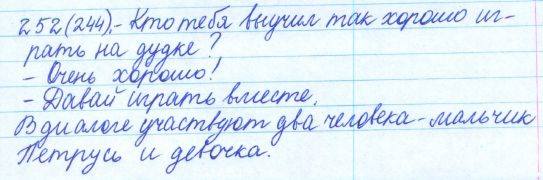 252(244).- Кто тебя выучил так хорошо иг-
рать на дудке?
- Очень хорошо!
- Давай играть вместе.
В диалоге участвуют два человека - мальчик
Петрусь и девочка.